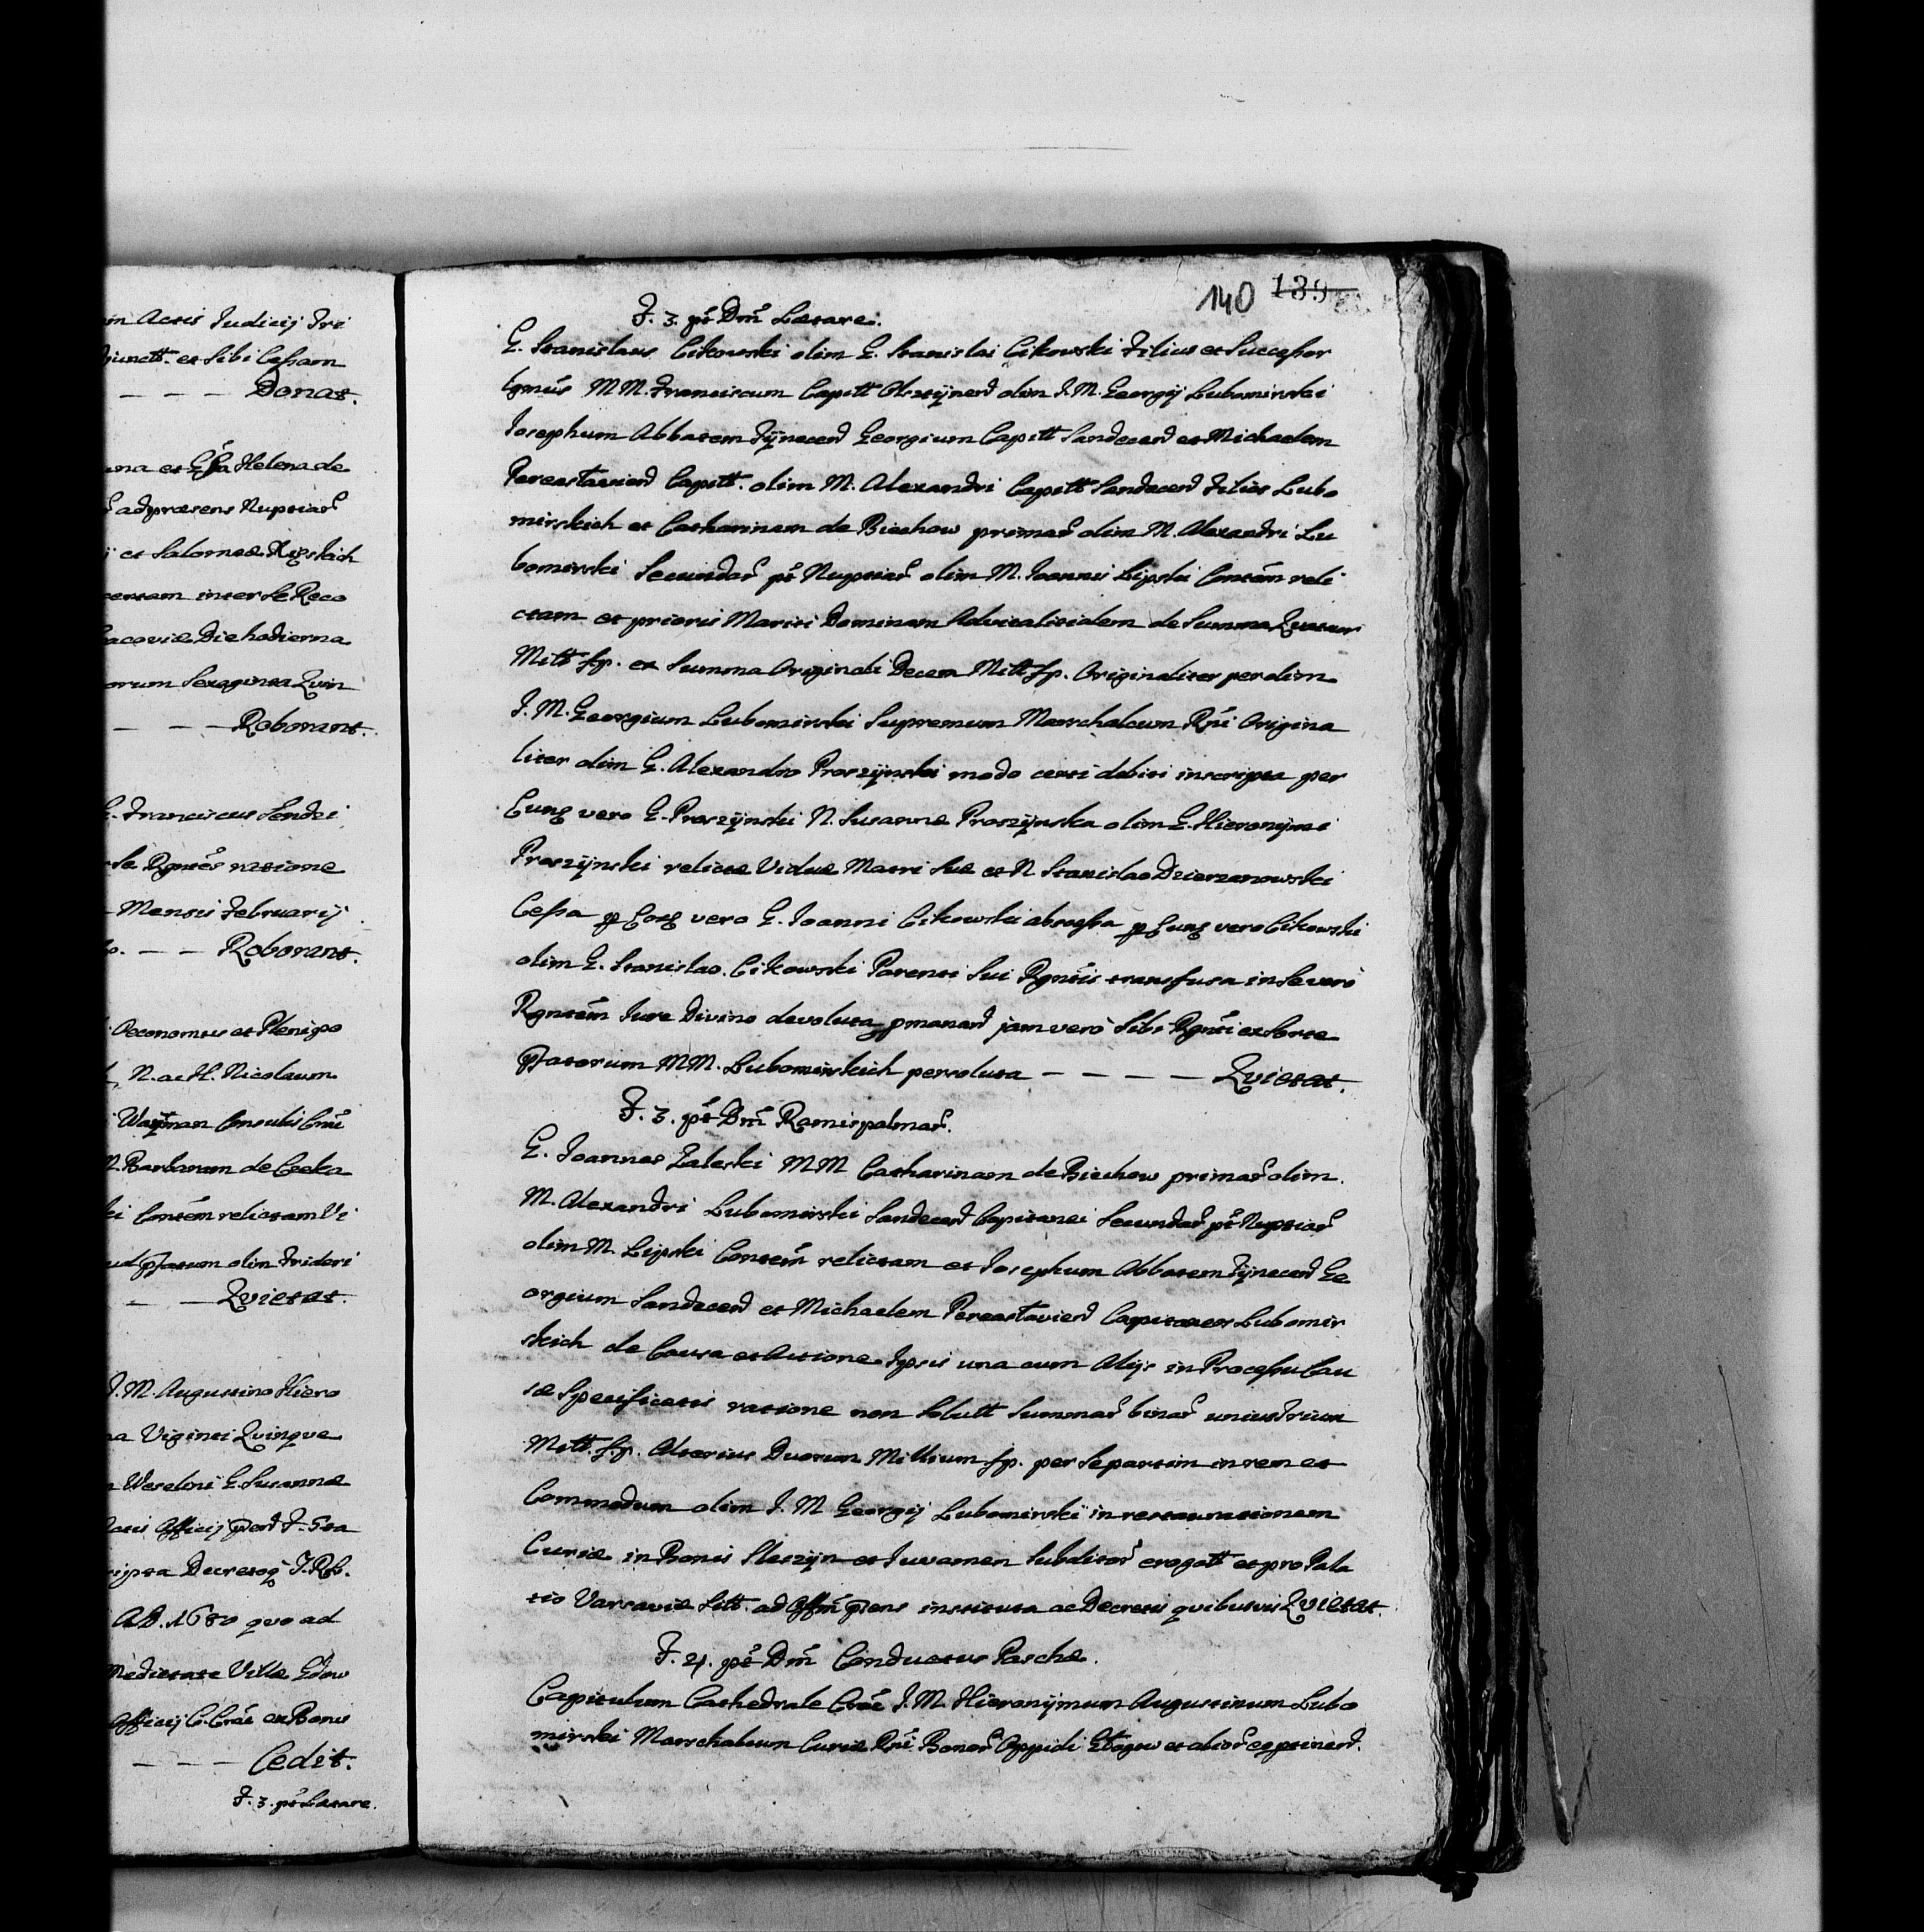 in Actis Iudicij Tri
junctt. et Sibi Cessam
— — — Donat.
na et Gsa Helena de
adpræsens Nuptiar
et Salomeæ
certam inter Se Reco
acoviæ Die hodierna
orum Sexaginta Qvin
— — Roborant.
G. Franciscus Sendzi
Se Rgntes ratione
Mensis Februarij
— — Roborant.
Oeconomus et Plenipo
N. ac H. Nicolaum
Consulis Crac
Barbaram de
Contem relictam Vi
ud pfatum olim Frideri
— — Qvietat.
I. M. Augustino Hiero
na Viginti Qvinqve
G. Susannæ
latis Officij pend F. 5ta
ripta Decretoq
AD. 1680 quo ad
Medietate Villæ Gdow
Officij C. Crac ex Bonis
— — — Cedit.
F. 3. pt Lætare.
140 139
F. 3. pt Dm Lætare.
G. Stanislaus Cikowski olim G. Stanislai Cikowski Filius et Successor
MM. Franciscum Capitt Olsztÿnen olim I. M. Georgij Lubomirski
Iosephum Abbatem Tÿnecen Georgium Capitt Sandecen et Michaelem
Pereastavien Capitt. olim M. Alexandri Capitt Sandecen Filios Lubo
mirskich et Catharinam de Biechow primar olim M. Alexandri Lu
bomirski Secundar pt Nuptiar olim M. Ioannis Lipski Contem reli
ctam et prioris Mariti Dominam Advitalitialem de Summa Qvatuor
Mitt fp. ex Summa Originali Decem Mitt fp. Originaliter per olim
I. M. Georgium Lubomirski Supremum Marschalcum Rni Origina
liter olim G. Alexandro Proszÿnski modo certi debiti inscripta per
Eunq vero G. Proszÿnski N. Susannæ Proszÿnska olim G. Hieronÿmi
Proszÿnski relictæ Viduæ Matri Suæ et N. Stanislao Dzierzanowski
Cessa p Eosq vero G. Ioanni Cikowski p Eunq vero Cikowski
olim G. Stanislao. Cikowski Parenti Sui Rgntis transfusa in Se vero
Rgntem Iure Divino devoluta pmanan jam vero Sibi Rgnti ex Sorte
pfatorum MM. Lubomirskich persoluta — — — — Qvietat.
F. 3. pt Dm Ramispalmar.
G. Ioannes Zaleski MM Catharinam de Biechow primar olim
M. Alexandri Lubomirski Sandecen Capitanei Secundar pt Nuptiar
olim M. Lipski Contem relictam et Iosephum Abbatem Tÿnecen Ge
orgium Sandecen et Michaelem Pereastavien Capitaneos Lubomir
skich de Causa et Actione Ipsis una cum Alijs in Processu Cau
sæ Specificatis ratione non Solutt Summar binar unius Trium
Mitt. fp. Alterius Duorum Millium fp. per Se partim in rem et
Commodum olim I. M Georgij Lubomirski in restaurationem
Curiæ in Bonis et Iuvamen Subditor erogatt et pro Pala
tio Varsaviæ Sitt. ad Offm pens instituta ac Decretis quibusvis Qvietat.
F. 4. pt Dm Conductus Paschæ.
Capitulum Cathedrale Crac I. M. Hieronÿmum Augustinum Lubo
mirski Marschalcum Curiæ Rni Bonor Oppidi Głogow et alior eo ptinen.